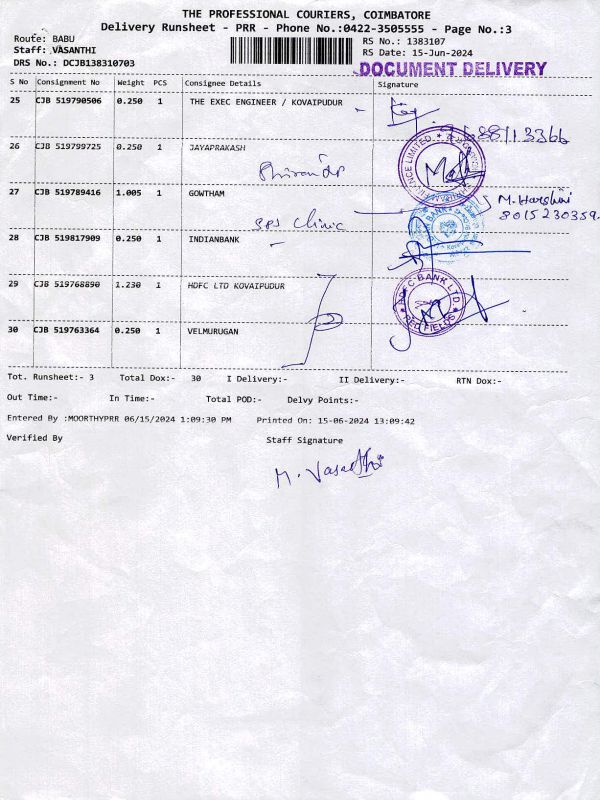 THE PROFESSIONAL COURIERS, COIMBATORE
Delivery Runsheet - PRR - Phone No.:0422-3505555 - Page No.:3
Route: BABU
Staff: VASANTHI
DRS No.: DCJB138310703
RS No.: 1383107
RS Date: 15-Jun-2024
DOCUMENT DELIVERY
S No Consignment No Weight PCS Consignee Details Signature
25 CJB 519790506 0.250 1 THE EXEC ENGINEER / KOVAIPUDUR
26 CJB 519799725 0.250 1 JAYAPRAKASH
27 CJB 519789416 1.005 1 GOWTHAM
SPS Clinic
M. Harshini
8015230359.
28 CJB 519817909 0.250 1 INDIANBANK
29 CJB 519768890 1.230 1 HDFC LTD KOVAIPUDUR
HDFC BANK LTD.
RED FIELDS
30 CJB 519763364 0.250 1 VELMURUGAN
Tot. Runsheet:- 3 Total Dox:- 30 I Delivery:- II Delivery:- RTN Dox:-
Out Time:- In Time:- Total POD:- Delvy Points:-
Entered By :MOORTHYPRR 06/15/2024 1:09:30 PM Printed On: 15-06-2024 13:09:42
Verified By Staff Signature
M. Vasanthi